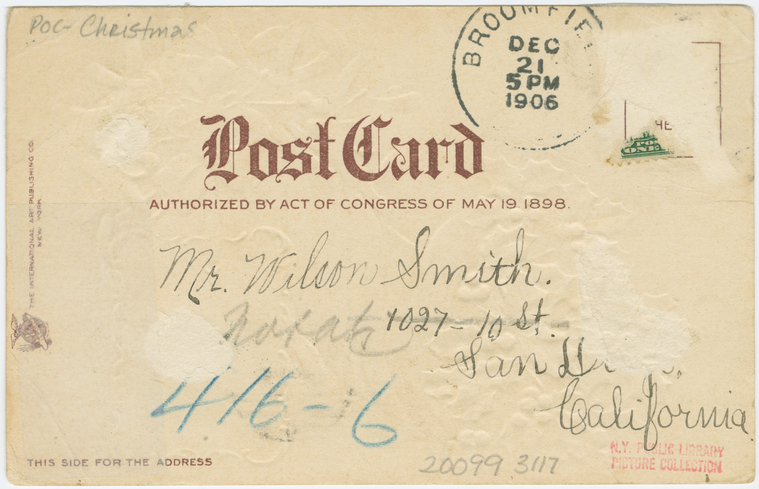 POC- Christmas
BROOMFIE
DEC
21
5 PM
1906
HE
POS
ONE
Post Card
AUTHORIZED BY ACT OF CONGRESS OF MAY 19. 1898.
THE INTERNATIONAL ART PUBLISHING CO.
NEW YORK
Mr. Wilson Smith.
1027-10 St.
San Di
California
416-6
THIS SIDE FOR THE ADDRESS
20099 3117
N.Y. PUBLIC LIBRARY
PICTURE COLLECTION